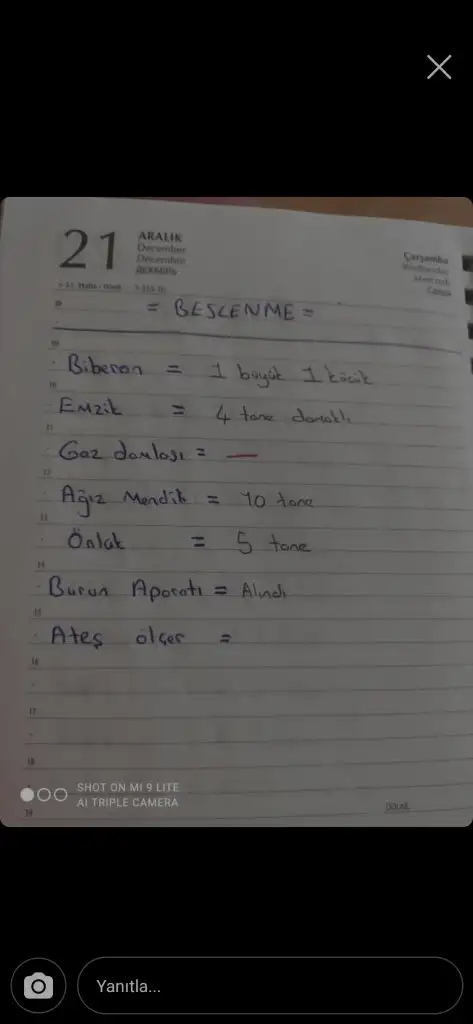 21
ARALIK
December
Décembre
ДЕКАБРЬ
Çarşamba
Wednesday
Mercredi
= BESLENME =
Biberon = 1 büyük 1 küçük
Emzik = 4 tane damaklı
Gaz damlası = —
Ağız Mendili = 10 tane
Önlük = 5 tane
Burun Aparatı = Alındı
Ateş ölçer =
SHOT ON MI 9 LITE
AI TRIPLE CAMERA
Yanıtla...